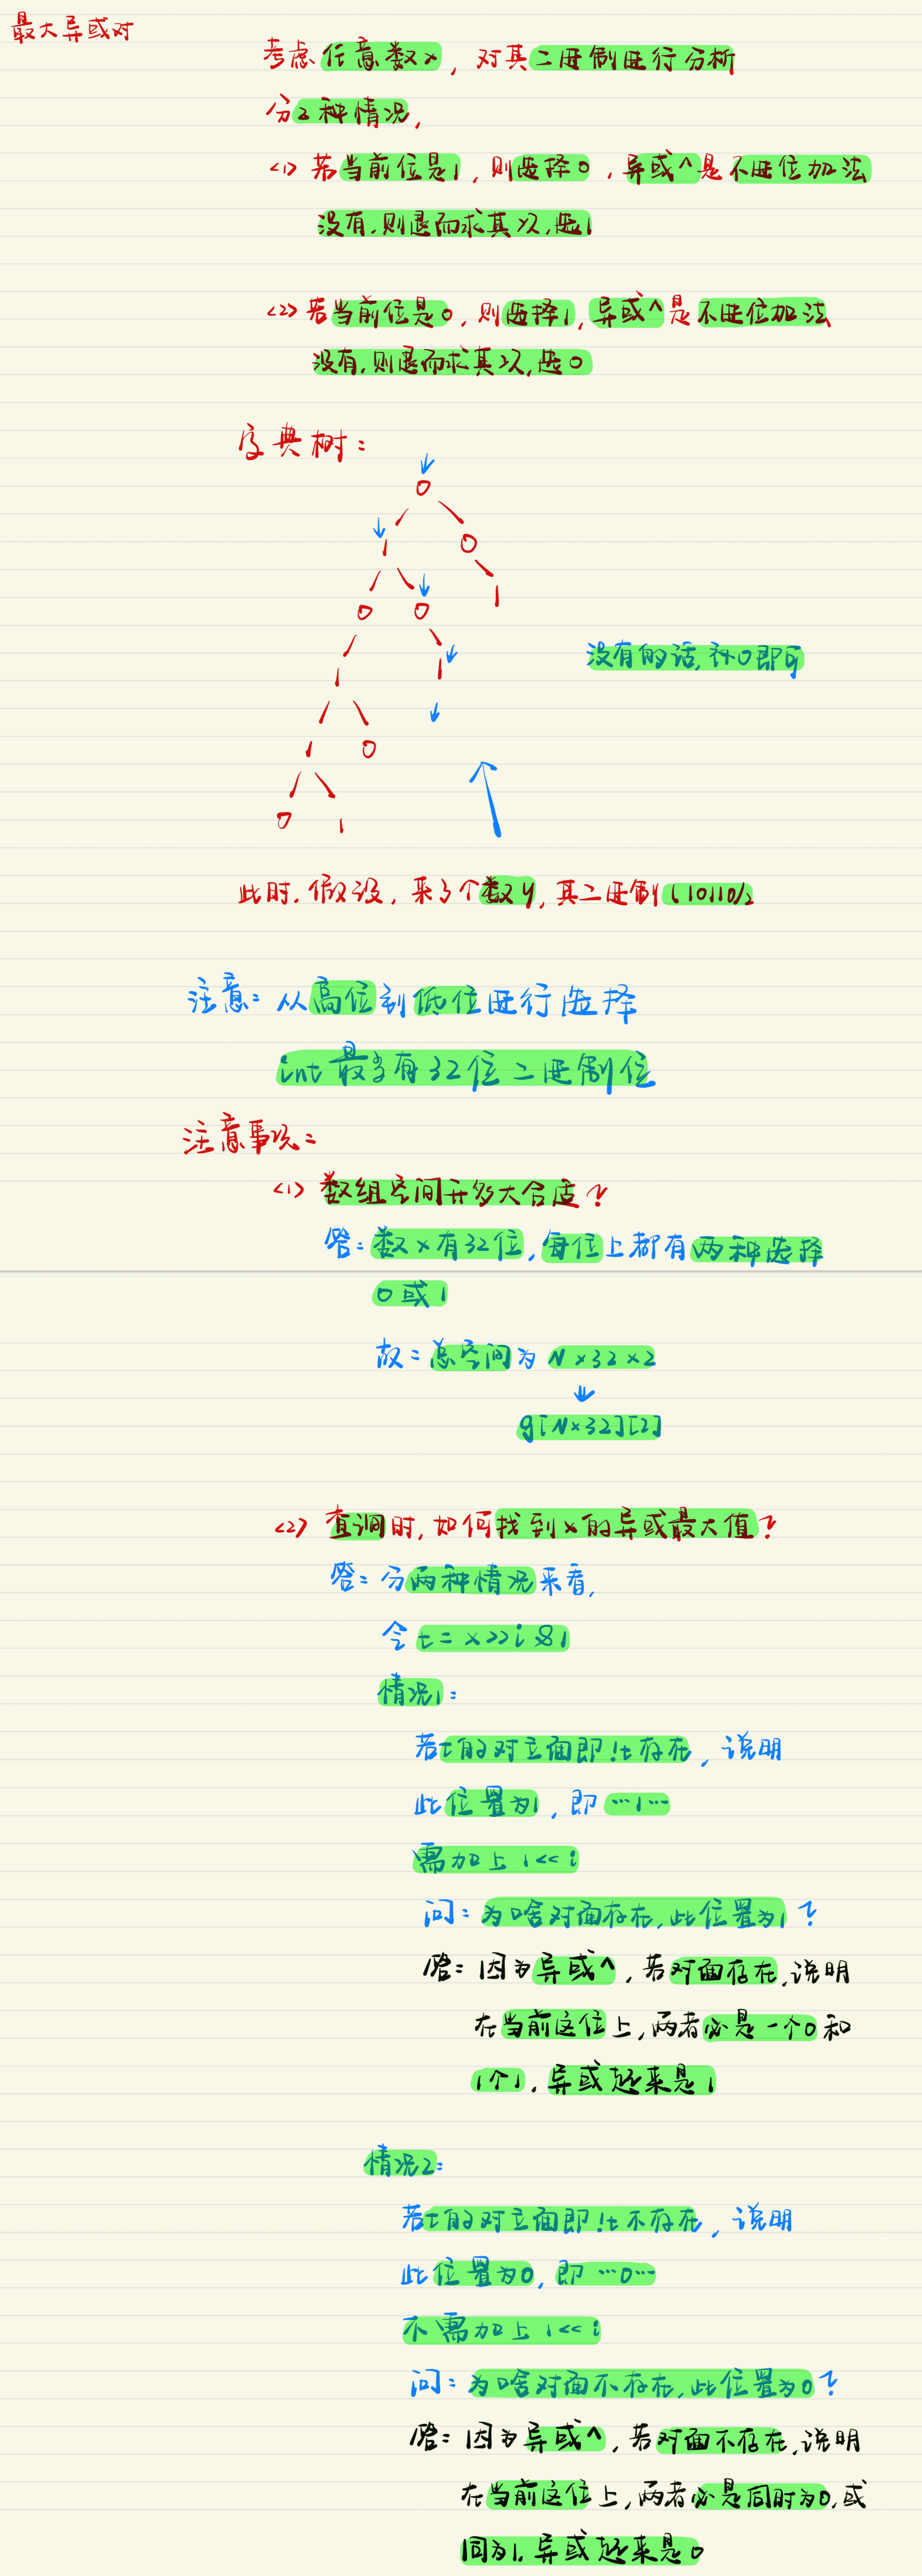 最大异或对
考虑任意数x，对其二进制进行分析
分2种情况，
<1> 若当前位是1，则选择0，异或^是不进位加法
没有，则退而求其次，选1
<2> 若当前位是0，则选择1，异或^是不进位加法
没有，则退而求其次，选0
字典树：
0
1 0
0 0 1
1 1
1 0
0 1
没有的话，补0即可
此时，假设，来了个数y，其二进制(10110)2
注意：从高位到低位进行选择
int最多有32位二进制位
注意事项：
<1> 数组空间开多大合适？
答：数x有32位，每位上都有两种选择
0或1
故：总空间为 N×32×2
g[N×32][2]
<2> 查询时，如何找到x的异或最大值？
答：分两种情况来看，
令 t = x>>i &1
情况1：
若t的对立面即!t存在，说明
此位置为1，即 …1…
需加上 1<<i
问：为啥对面存在，此位置为1？
答：因为异或^，若对面存在，说明
在当前这位上，两者必是一个0和
1个1，异或起来是1
情况2：
若t的对立面即!t不存在，说明
此位置为0，即 …0…
不需加上 1<<i
问：为啥对面不存在，此位置为0？
答：因为异或^，若对面不存在，说明
在当前这位上，两者必是同时为0，或
同为1，异或起来是0